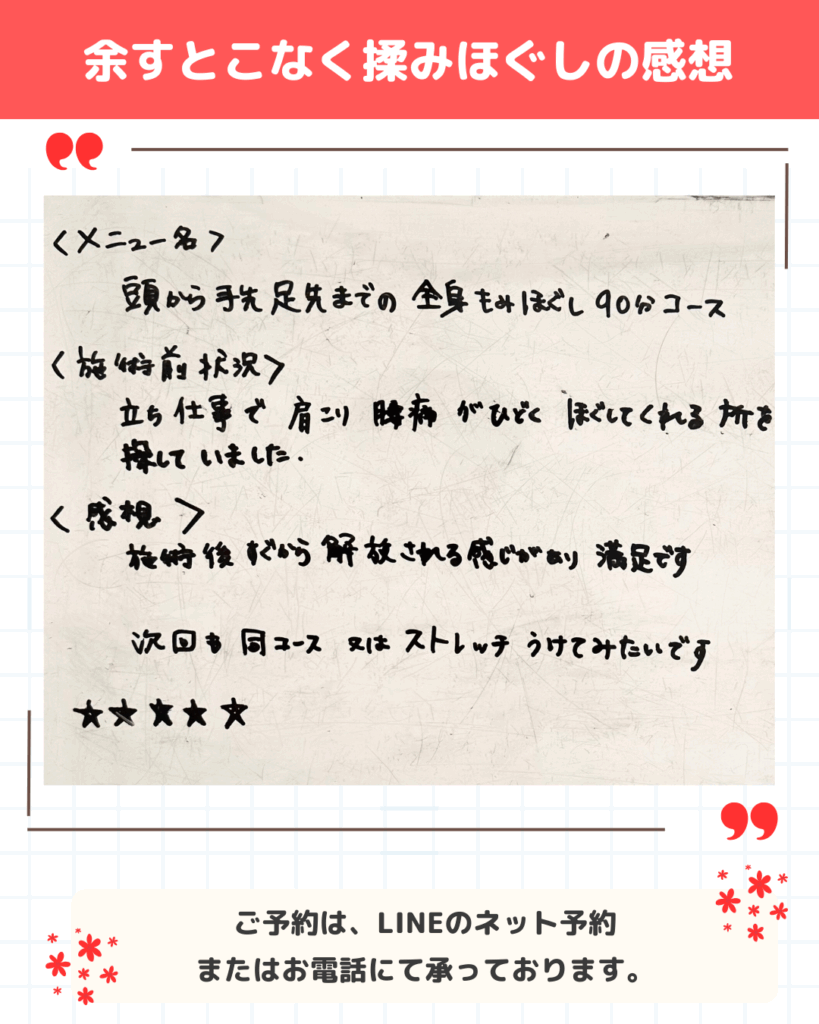 余すとこなく揉みほぐしの感想
<メニュー名>
頭から手先足先までの全身もみほぐし90分コース
<施術前状況>
立ち仕事で肩こり腰痛がひどくほぐしてくれる所を
探していました.
<感想>
施術後すぐから解放される感じがあり満足です
次回も同コース又はストレッチうけてみたいです
★★★★★
ご予約は、LINEのネット予約
またはお電話にて承っております。